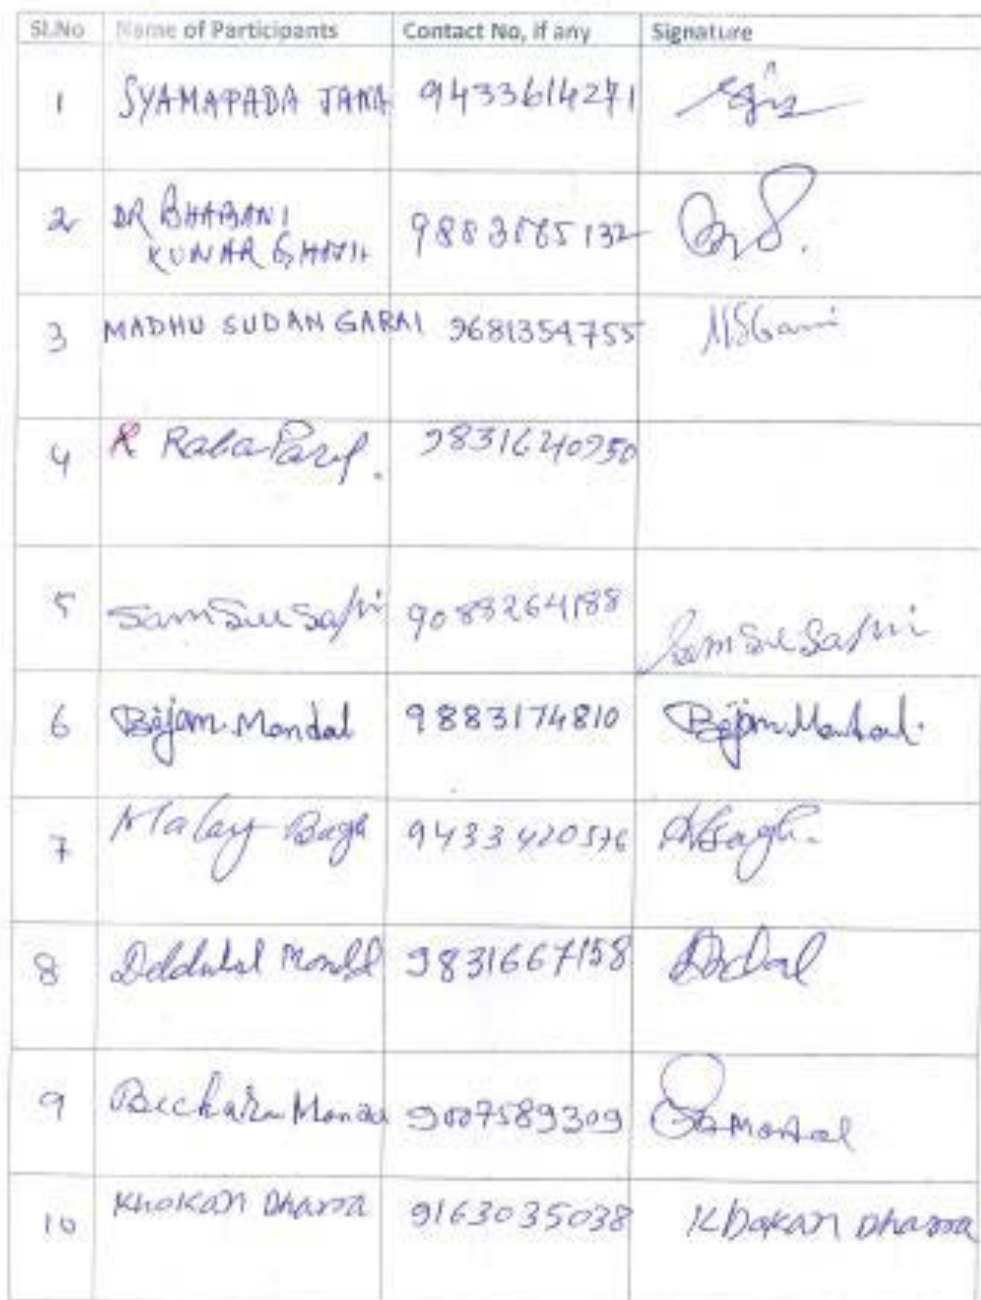 Sl.No Name of Participants Contact No, if any Signature
1 SYAMAPADA JANA 9433614271
2 DR BHABANI
KUNAR GHATIK 9883565132
3 MADHU SUDAN GARAI 9681354755 MSGarai
4 R 9831640950
5 Samsu Safui 9083264188 Samsu Safui
6 Bijan Mondal 9883174810 Bijan Mondal.
7 Malay Bagh 9433420576 MBagh.
8 Mondal 9831667158
9 Becharam Mondal 9007589309 Mondal
10 Khokan Dhara 9163035038 Khokan Dhara